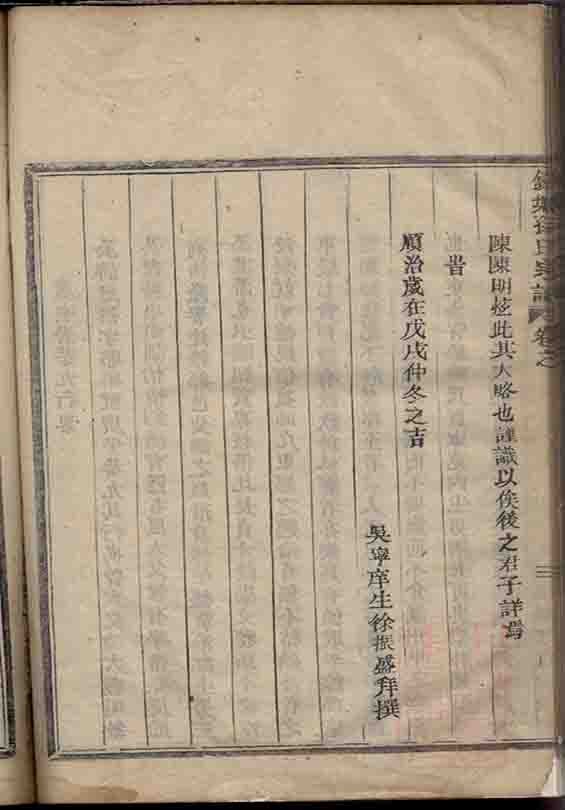 徐氏宗譜 卷之
陳陳明茲此其大略也謹識以俟後之君子詳焉
昔
順治歲在戊戌仲冬之吉
吳寧庠生徐振盛拜撰